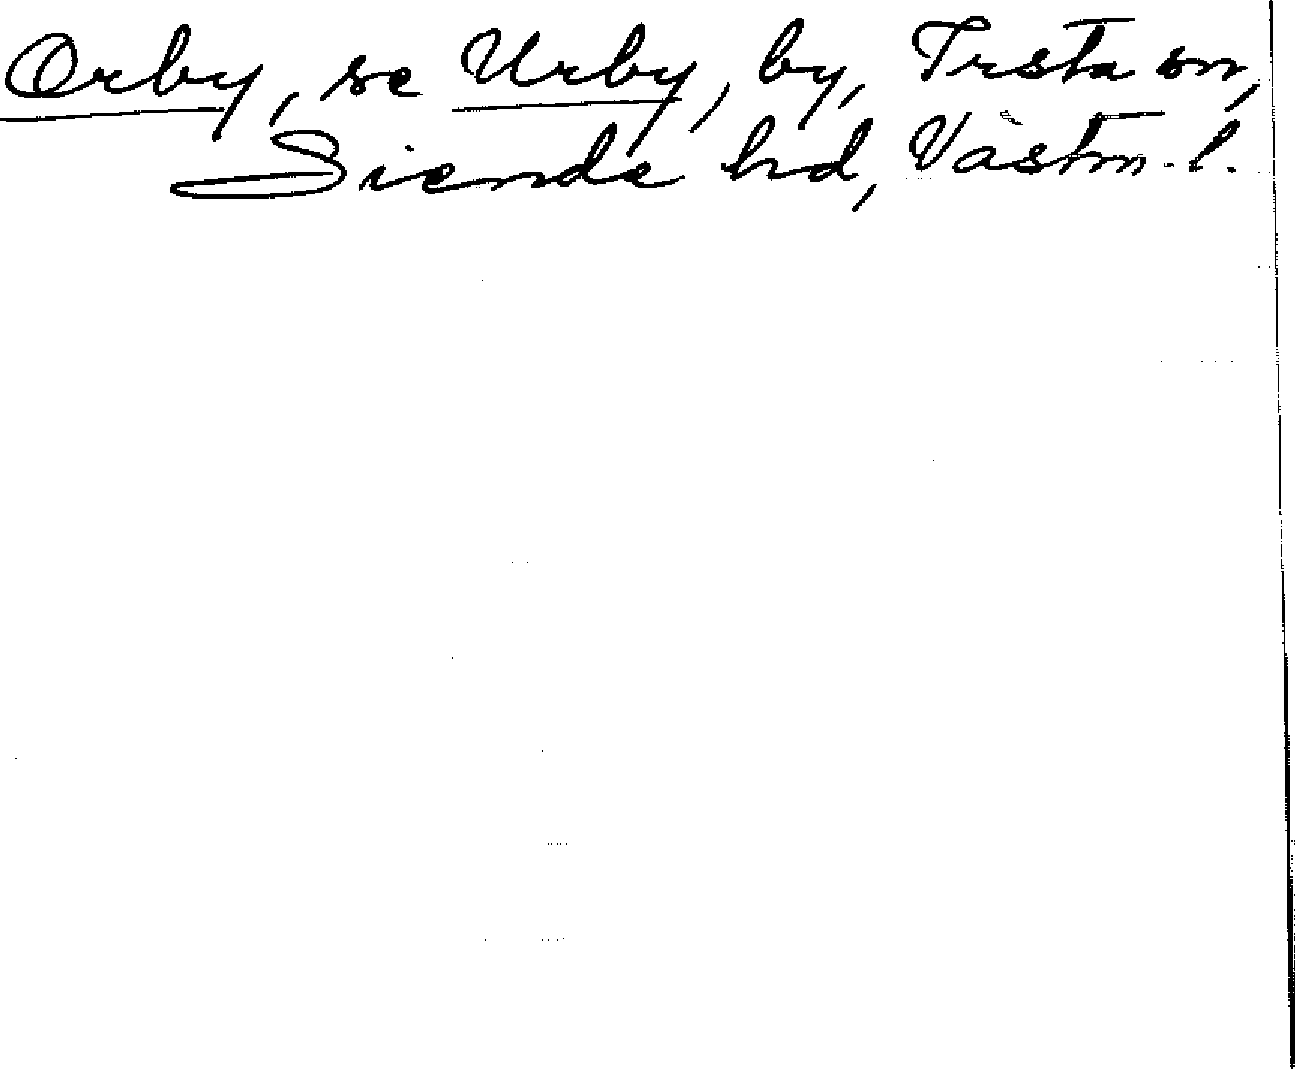 Orby, se Urby, by, Irsta sn,
Siende hd, Västm. l.